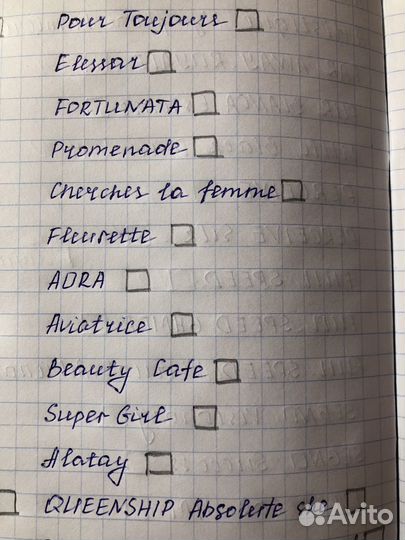 Pour Toujours
Elessar
FORTUNATA
Promenade
Cherches la femme
Fleurette
ADRA
Aviatrice
Beauty Cafe
Super Girl
Alatay
QUEENSHIP Absolute
Avito